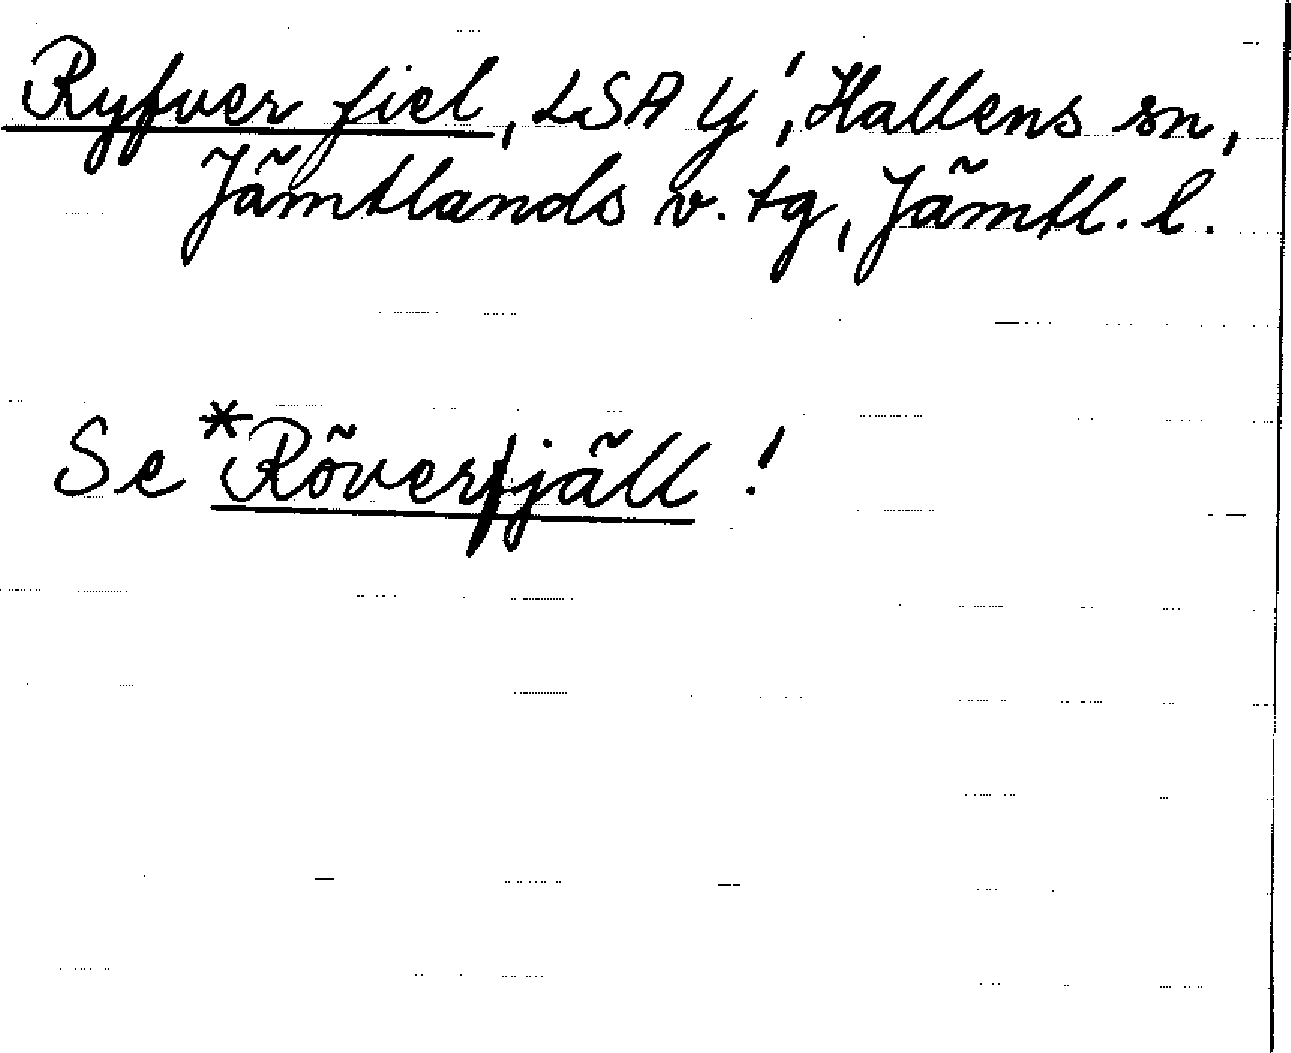 Ryfver fiel, LSA Y', Hallens sn,
Jämtlands v. tg, Jämtl. l.
Se *Röverfjäll!